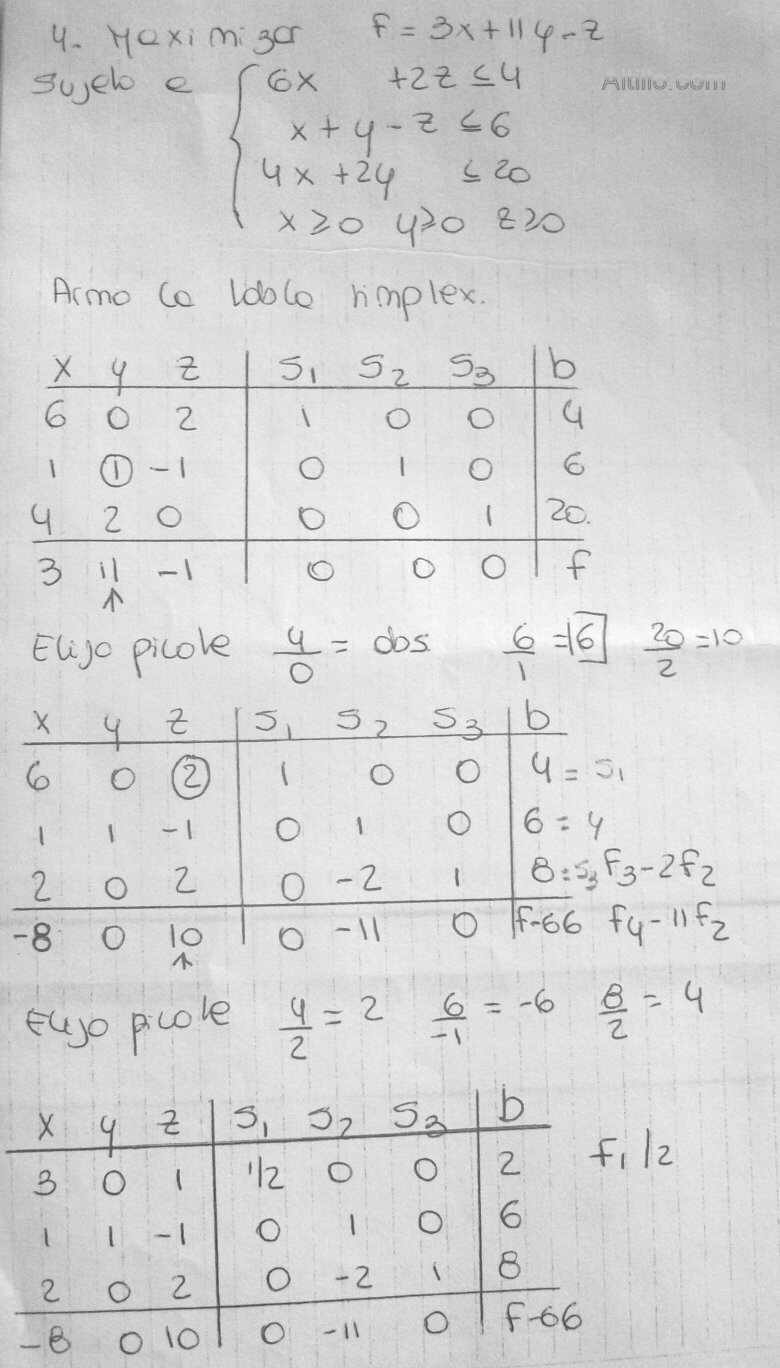 4. Maximizar f = 3x+11y-z
Altillo.com
sujeto a { 6x +2z ≤4
x+y-z ≤6
4x+2y ≤20
x≥0 y≥0 z≥0
Armo la tabla simplex.
x y z | S1 S2 S3 | b
6 0 2 | 1 0 0 | 4
1 ① -1 | 0 1 0 | 6
4 2 0 | 0 0 1 | 20.
3 11 -1 | 0 0 0 | f
↑
Elijo pivote 4/0 = abs 6/1 = |6| 20/2 =10
x y z | S1 S2 S3 | b
6 0 ② | 1 0 0 | 4 = S1
1 1 -1 | 0 1 0 | 6 = y
2 0 2 | 0 -2 1 | 8 = S3 f3-2f2
-8 0 10 | 0 -11 0 | f-66 f4-11f2
↑
Elijo pivote 4/2 = 2 6/-1 = -6 8/2 = 4
x y z | S1 S2 S3 | b
3 0 1 | 1/2 0 0 | 2 f1/2
1 1 -1 | 0 1 0 | 6
2 0 2 | 0 -2 1 | 8
-8 0 10 | 0 -11 0 | f-66